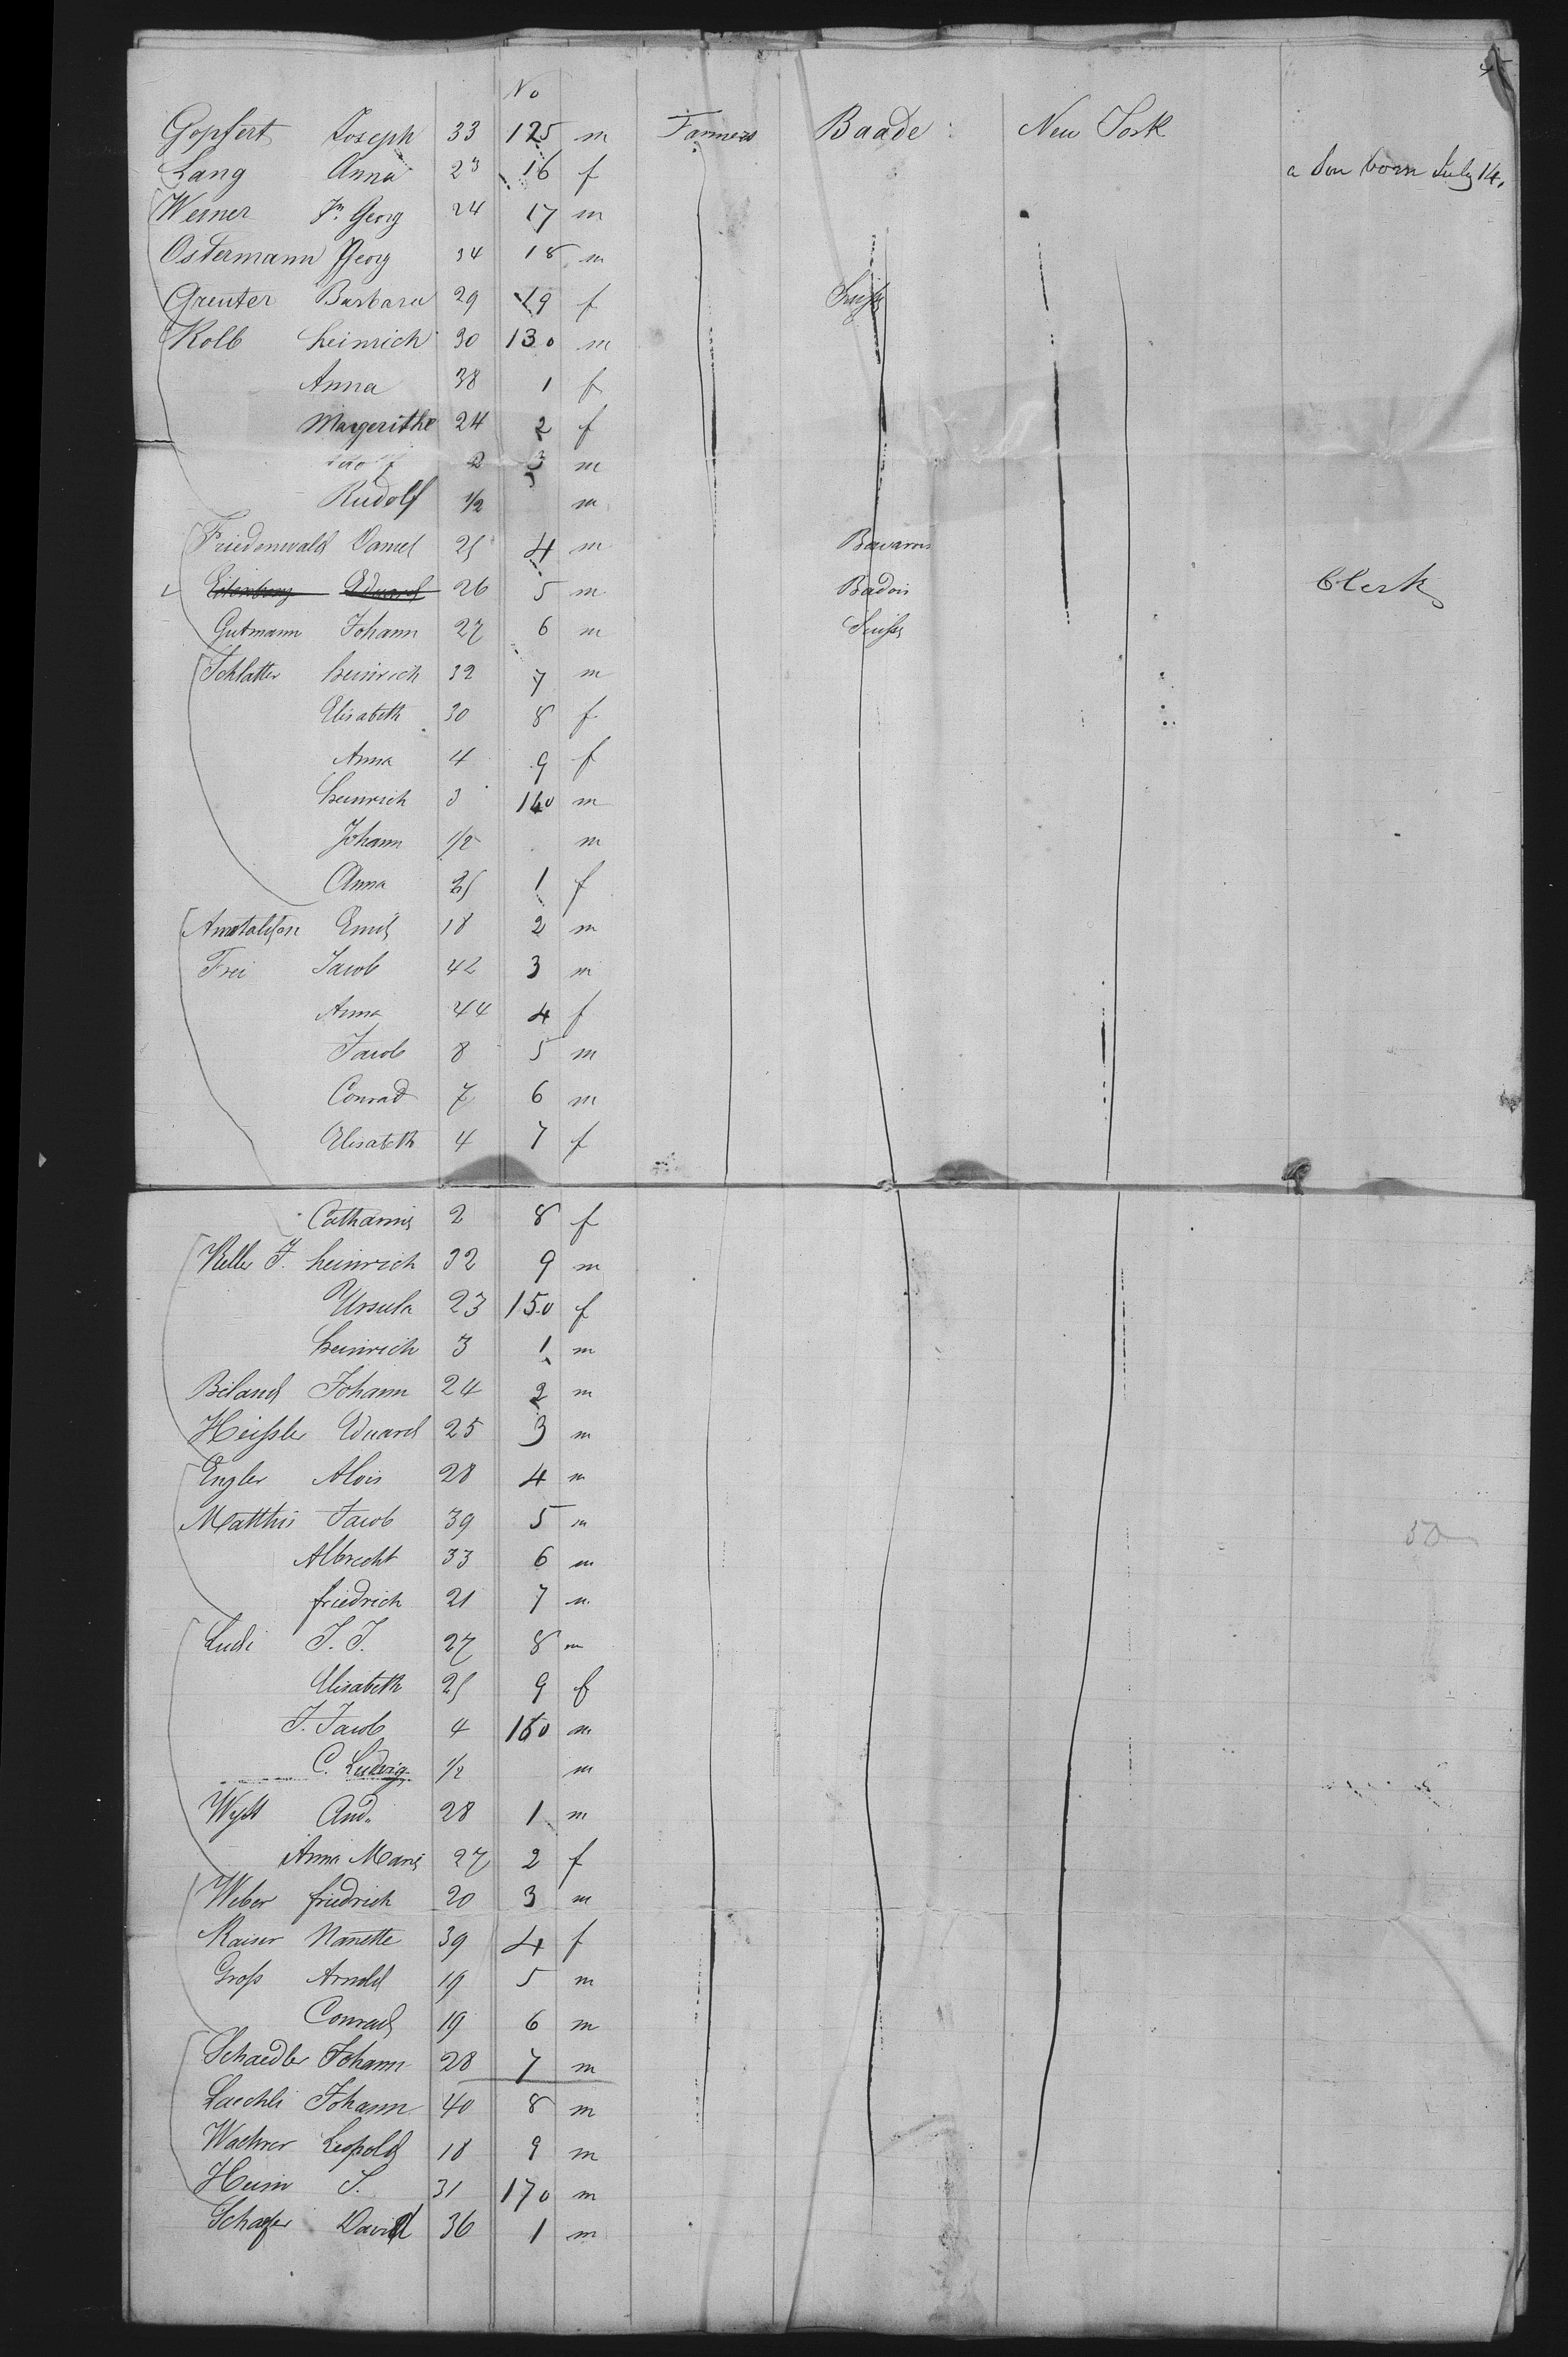 45
No
Gopfert Joseph 33 125 m Farmers Baade New York
Lang Anna 23 16 f a Son born July 14.
Werner Jn. Georg 24 17 m
Ostermann Georg 34 18 m
Greuter Barbara 29 19 f Suisse
Kolb Heinrich 30 130 m
Anna 38 1 f
Margerithe 24 2 f
2 3 m
Rudolf 1/2 m
Friedenwald Daniel 25 4 m Bavarois
Eduard 26 5 m Badois Clerk
Gutmann Johann 27 6 m Suisse
Schlatter Heinrich 32 7 m
Elisabeth 30 8 f
Anna 4 9 f
Heinrich 3 140 m
Johann 1/2 m
Anna 25 1 f
Emil 18 2 m
Frei Jacob 42 3 m
Anna 44 4 f
Jacob 8 5 m
Conrad 7 6 m
Elisabeth 4 7 f
Catharina 2 8 f
Keller J. Heinrich 32 9 m
Ursula 23 150 f
Heinrich 3 1 m
Biland Johann 24 2 m
Heissler Eduard 25 3 m
Engler Alois 28 4 m
Matthis Jacob 39 5 m
Albrecht 33 6 m
50
Friedrich 21 7 m
Ludi J. J. 27 8 m
Elisabeth 25 9 f
J. Jacob 4 160 m
C. Ludwig 1/2 m
Wyss And. 28 1 m
Anna Maria 27 2 f
Weber Friedrich 20 3 m
Kaiser Nanette 39 4 f
Gross Arnold 19 5 m
Conrad 19 6 m
Schaedler Johann 28 7 m
Laechli Johann 40 8 m
Waehrer Leopold 18 9 m
Heim J. 31 170 m
Schafer David 36 1 m